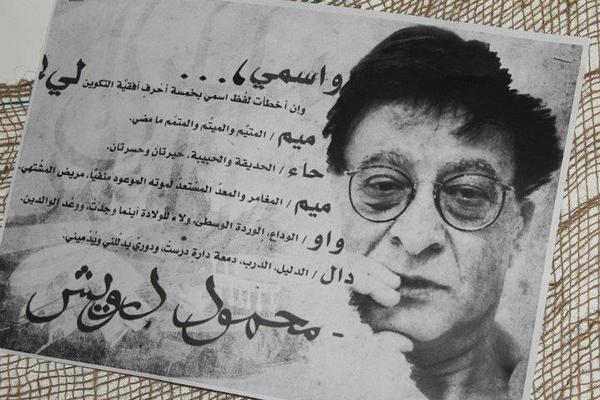 واسمي، ... لي
وإن أخطأت لفظ اسمي بخمسة أحرف أفقيّة التكوين
ميم / المتيّم والميتّم والمتمّم ما مضى.
حاء / الحديقة والحبيبة، حيرتان وحسرتان.
ميم / المغامر والمعدّ المستعدّ لموته الموعود منفيّا، مريض المشتهى.
واو / الوداع، الوردة الوسطى، ولاء للولادة أينما وجدت، ووعد الوالدين.
دال / الدليل، الدرب، دمعة دارة درست، ودوريّ يدلّلني ويدميني.
محمود درويش -